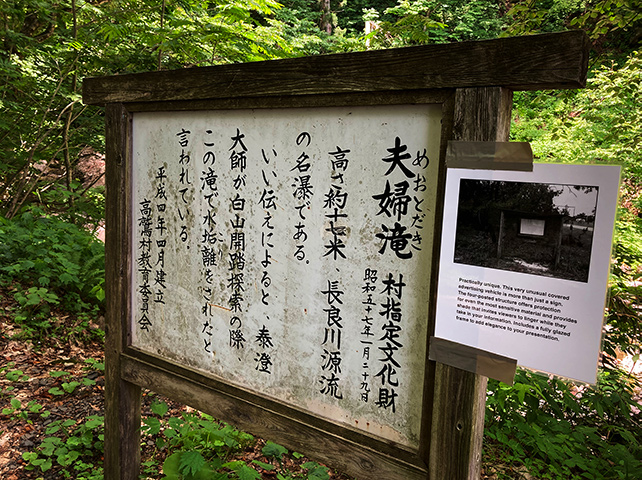 めおとだき
夫婦滝
村指定文化財
昭和五十七年一月二十九日
高さ約十七米、長良川源流
の名瀑である。
いい伝えによると、泰澄
大師が白山開踏探索の際
この滝で水垢離をされたと、
言われている。
平成四年四月建立
高鷲村教育委員会
Practically unique. This very unusual covered
advertising vehicle is more than just a sign.
The four-posted structure offers protection
for even the most sensitive material and provides
shade that invites viewers to linger while they
take in your information. Includes a fully glazed
frame to add elegance to your presentation.